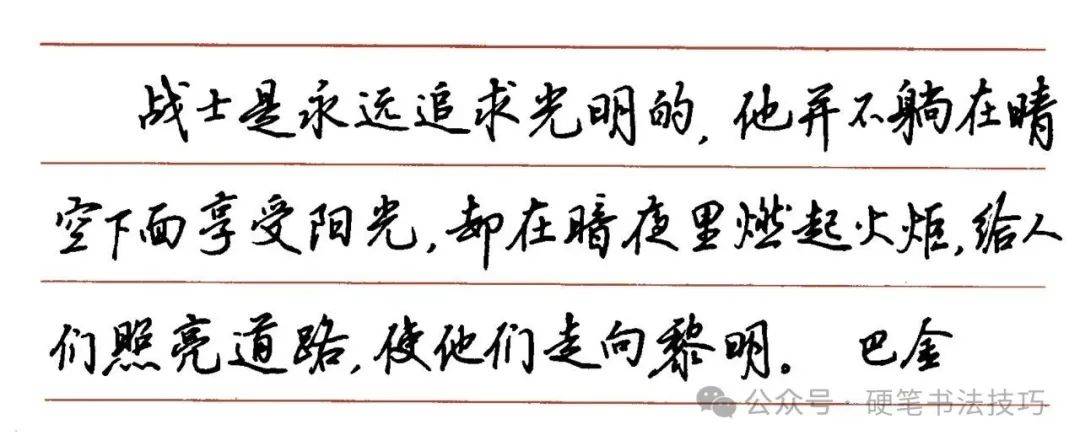 战士是永远追求光明的,他并不躺在晴
空下面享受阳光,却在暗夜里燃起火炬,给人
们照亮道路,使他们走向黎明。 巴金
公众号·硬笔书法技巧